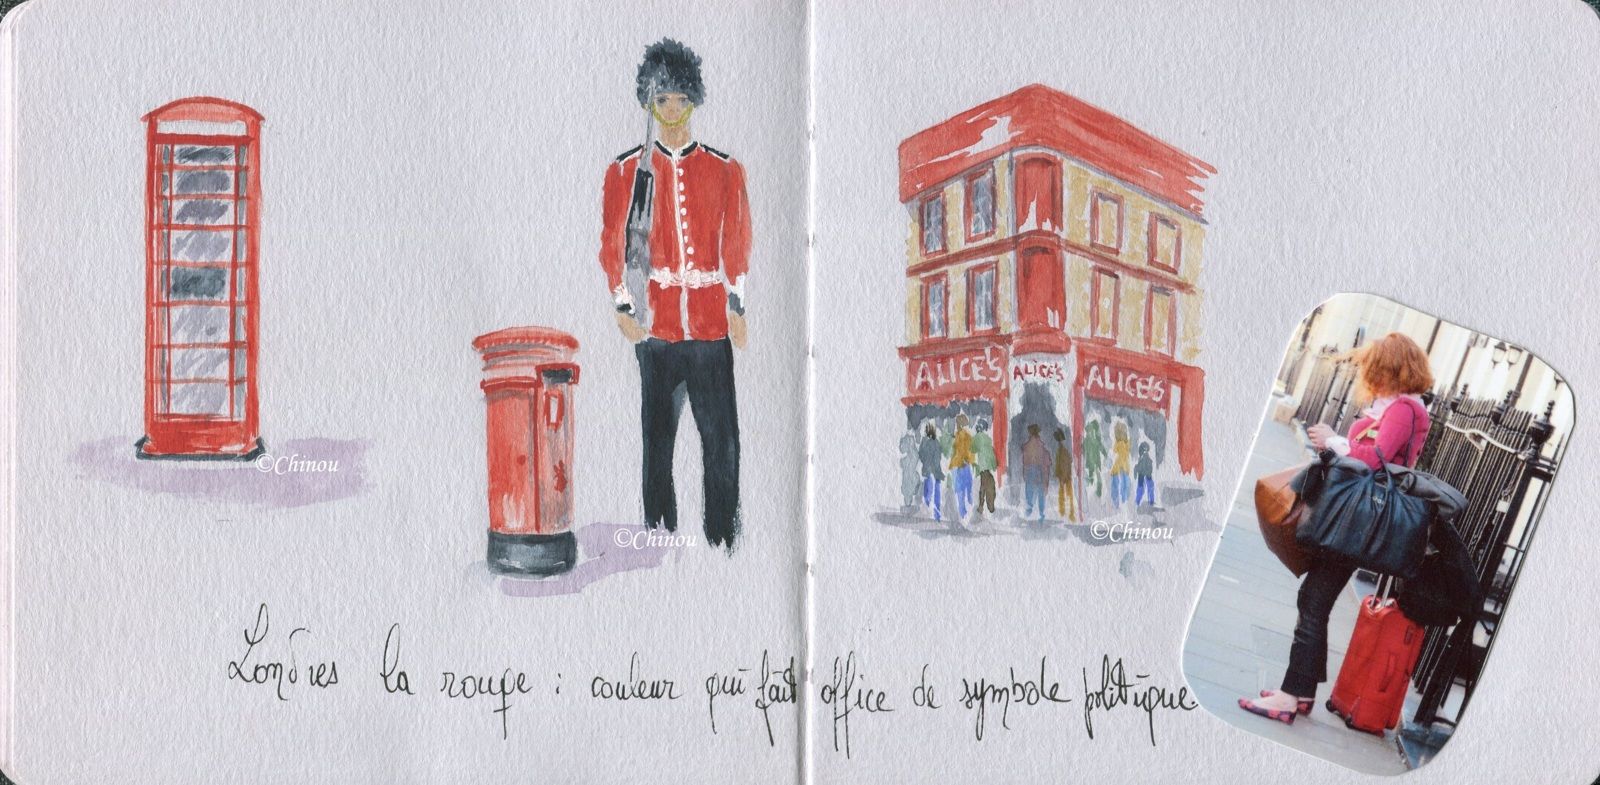 ALICE'S ALICE'S ALICE'S
©Chinou
©Chinou
©Chinou
Londres la rouge : couleur qui fait office de symbole politique.